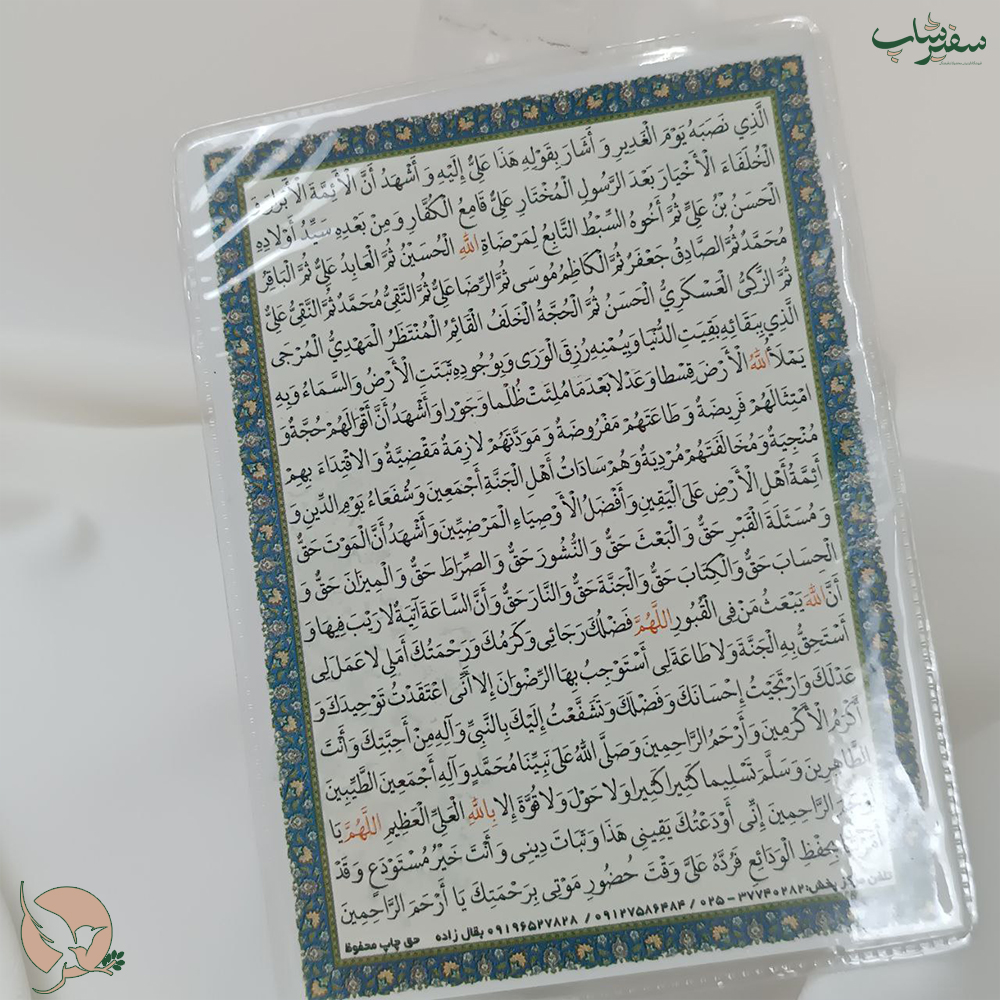 سفیر شاپ
الَّذِي نَصَبَهُ يَوْمَ الْغَدِيرِ وَ أَشَارَ بِقَوْلِهِ هَذَا عَلِيٌّ إِلَيْهِ وَ أَشْهَدُ أَنَّ الْأَئِمَّةَ الْأَبْرَارَ وَ
الْخُلَفَاءَ الْأَخْيَارَ بَعْدَ الرَّسُولِ الْمُخْتَارِ عَلِيٌّ قَامِعُ الْكُفَّارِ وَ مِنْ بَعْدِهِ سَيِّدُ أَوْلَادِهِ
الْحَسَنُ بْنُ عَلِيٍّ ثُمَّ أَخُوهُ السِّبْطُ التَّابِعُ لِمَرْضَاةِ اللهِ الْحُسَيْنُ ثُمَّ الْعَابِدُ عَلِيٌّ ثُمَّ الْبَاقِرُ
مُحَمَّدٌ ثُمَّ الصَّادِقُ جَعْفَرٌ ثُمَّ الْكَاظِمُ مُوسَى ثُمَّ الرِّضَا عَلِيٌّ ثُمَّ التَّقِيُّ مُحَمَّدٌ ثُمَّ النَّقِيُّ عَلِيٌّ
ثُمَّ الزَّكِيُّ الْعَسْكَرِيُّ الْحَسَنُ ثُمَّ الْحُجَّةُ الْخَلَفُ الْقَائِمُ الْمُنْتَظَرُ الْمَهْدِيُّ الْمُرْجَى
الَّذِي بِبَقَائِهِ بَقِيَتِ الدُّنْيَا وَ بِيُمْنِهِ رُزِقَ الْوَرَى وَ بِوُجُودِهِ ثَبَتَتِ الْأَرْضُ وَ السَّمَاءُ وَ بِهِ
يَمْلَأُ اللهُ الْأَرْضَ قِسْطا وَ عَدْلا بَعْدَ مَا مُلِئَتْ ظُلْما وَ جَوْرا وَ أَشْهَدُ أَنَّ أَقْوَالَهُمْ حُجَّةٌ وَ
امْتِثَالَهُمْ فَرِيضَةٌ وَ طَاعَتَهُمْ مَفْرُوضَةٌ وَ مَوَدَّتَهُمْ لازِمَةٌ مَقْضِيَّةٌ وَ الاقْتِدَاءَ بِهِمْ
مُنْجِيَةٌ وَ مُخَالَفَتَهُمْ مُرْدِيَةٌ وَ هُمْ سَادَاتُ أَهْلِ الْجَنَّةِ أَجْمَعِينَ وَ شُفَعَاءُ يَوْمِ الدِّينِ وَ
أَئِمَّةُ أَهْلِ الْأَرْضِ عَلَى الْيَقِينِ وَ أَفْضَلُ الْأَوْصِيَاءِ الْمَرْضِيِّينَ وَ أَشْهَدُ أَنَّ الْمَوْتَ حَقٌّ
وَ مُسَئَلَةَ الْقَبْرِ حَقٌّ وَ الْبَعْثَ حَقٌّ وَ النُّشُورَ حَقٌّ وَ الصِّرَاطَ حَقٌّ وَ الْمِيزَانَ حَقٌّ وَ
الْحِسَابَ حَقٌّ وَ الْكِتَابَ حَقٌّ وَ الْجَنَّةَ حَقٌّ وَ النَّارَ حَقٌّ وَ أَنَّ السَّاعَةَ آتِيَةٌ لا رَيْبَ فِيهَا وَ
أَنَّ اللهَ يَبْعَثُ مَنْ فِي الْقُبُورِ اللَّهُمَّ فَضْلُكَ رَجَائِي وَ كَرَمُكَ وَ رَحْمَتُكَ أَمَلِي لا عَمَلَ لِي
أَسْتَحِقُّ بِهِ الْجَنَّةَ وَ لا طَاعَةَ لِي أَسْتَوْجِبُ بِهَا الرِّضْوَانَ إِلا أَنِّي اعْتَقَدْتُ تَوْحِيدَكَ وَ
عَدْلَكَ وَ ارْتَجَيْتُ إِحْسَانَكَ وَ فَضْلَكَ وَ تَشَفَّعْتُ إِلَيْكَ بِالنَّبِيِّ وَ آلِهِ مِنْ أَحِبَّتِكَ وَ أَنْتَ
أَكْرَمُ الْأَكْرَمِينَ وَ أَرْحَمُ الرَّاحِمِينَ وَ صَلَّى اللهُ عَلَى نَبِيِّنَا مُحَمَّدٍ وَ آلِهِ أَجْمَعِينَ الطَّيِّبِينَ
الطَّاهِرِينَ وَ سَلَّمَ تَسْلِيما كَثِيرا كَثِيرا وَ لا حَوْلَ وَ لا قُوَّةَ إِلا بِاللهِ الْعَلِيِّ الْعَظِيمِ اللَّهُمَّ يَا
الرَّاحِمِينَ إِنِّي أَوْدَعْتُكَ يَقِينِي هَذَا وَ ثَبَاتَ دِينِي وَ أَنْتَ خَيْرُ مُسْتَوْدَعٍ وَ قَدْ
بِحِفْظِ الْوَدَائِعِ فَرُدَّهُ عَلَيَّ وَقْتَ حُضُورِ مَوْتِي بِرَحْمَتِكَ يَا أَرْحَمَ الرَّاحِمِينَ
تلفن مرکز پخش: ۳۷۷۴۰۲۸۲ - ۰۲۵ / ۰۹۱۲۷۵۸۶۴۸۴ / ۰۹۱۹۶۵۲۷۸۲۸ بقال زاده حق چاپ محفوظ